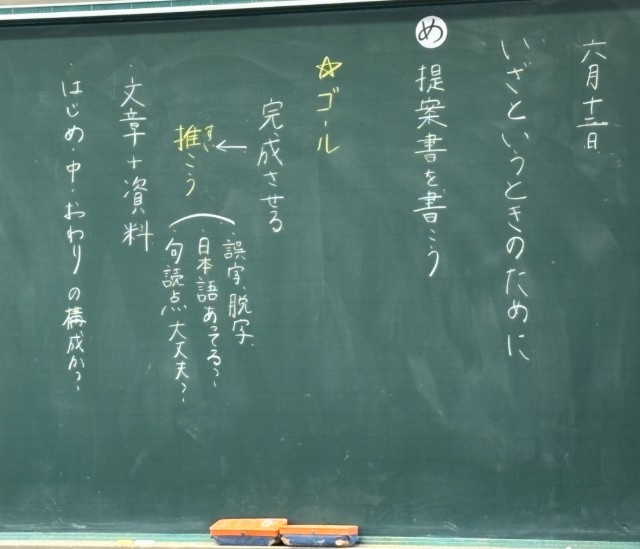 六月十二日
いざというときのために
め 提案書を書こう
☆ゴール
完成させる
←
推こう
すい
誤字、脱字、
・日本語あってる?
・句読点大丈夫?
・文章+資料
・はじめ・中・おわりの構成か?